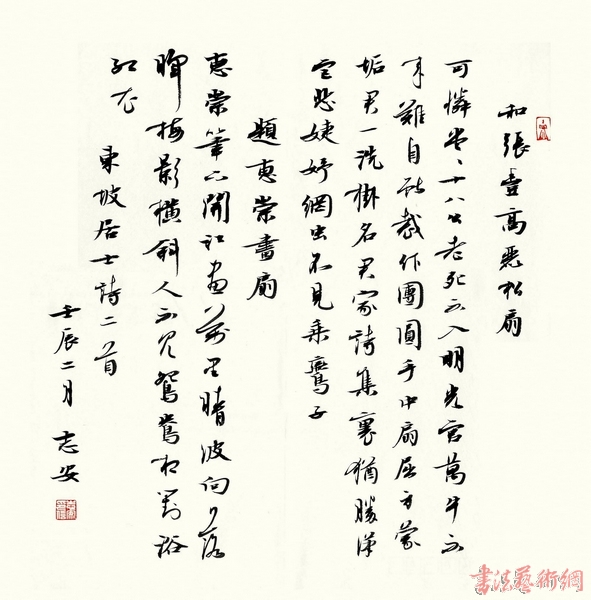 和張耒高麗松扇
可憐堂堂十八公老死不入明光宮萬牛不
來難自獻裁作團團手中扇屈身蒙
垢君一洗掛名君家詩集裏猶勝漢
宮悲婕妤網虫不見乘鸞女
題惠崇畫扇
惠崇筆下開江面萬里晴波向落
暉梅影橫斜人不見鴛鴦相對浴
紅衣
東坡居士詩二首
壬辰二月 志安
書法藝術網